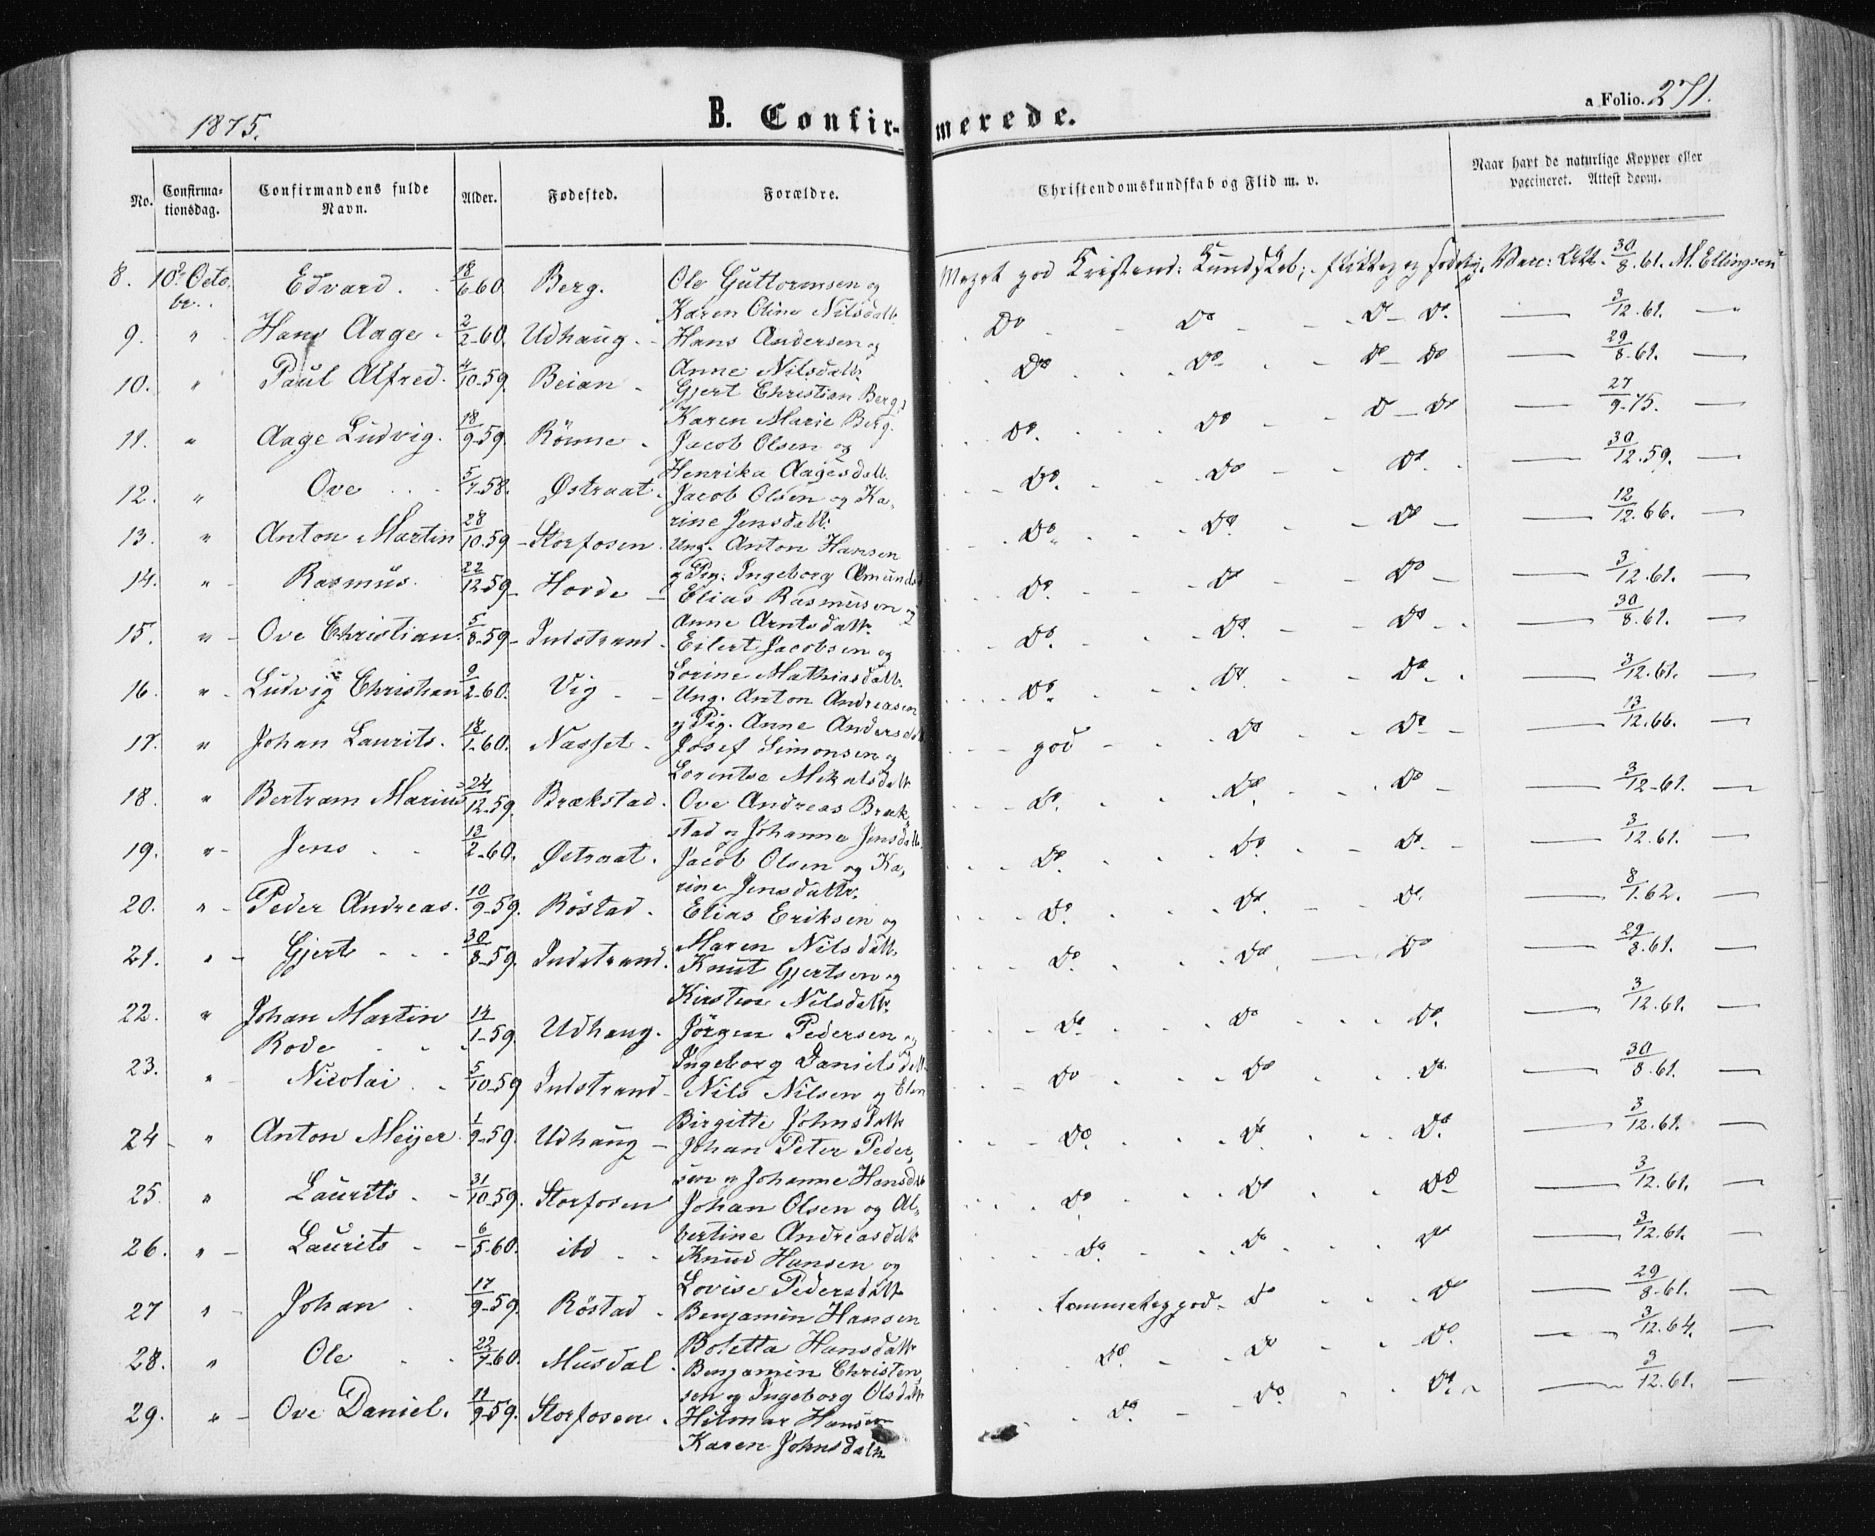 1875.
B. Confirmerede.
a Folio. 271.
No. Confirmationsdag. Confirmandens fulde Navn. Alder. Fødested. Forældre. Christendomskundskab og Flid m. v. Naar havt de naturlige Kopper eller vaccineret. Attest derom.
8. 10de Octobr. Edvard 18/6 60 Berg. Ole Guttormsen og Karen Eline Nilsdatt. Meget god Kristend: Kundskab; flittig og sædelig. Vacc: Att. 30/8.61. M. Ellingsen
9. " Hans Aage 2/2-60. Udhaug. Hans Andersen og Anne Nilsdattr. Do Do D- Do. — 3/12.61. "
10. " Paul Alfred. 4/10-59. Beian Gjert Christian Berg, Karen Marie Berg. Do Do Do - Do — 29/8.61. —
11. " Aage Ludvig. 18/9-59. Rönne Jacob Olsen og Henrika Aagesdatt. Do. Do D - Do — 27/9-75. —
12. " Ove 5/7-58. Østraat. Jacob Olsen og Karine Jensdatt. Do. Do Do. — 30/12.59. —
13. " Anton Martin 28/10.59 Storfosen. Ung. Anton Hansen og Pig: Ingeborg Amunds Do. Do. Do — 12/12.66. —
14. " Rasmus. 22/12-59 Hovde Elias Rasmussen og Anne Arntsdatt. Do. Do Do — 3/12.61. —
15. " Ove Christian 5/8-59 Indstrand Eilert Jacobsen og Lorine Mathiasdatt. Do. Do. Do — 30/8.61. —
16. " Ludvig Christian 9/2-60. Vig Ung. Anton Andreasen og Pig. Anne Andersdatt Do. Do. Do. — 3/12.61. —
17. " Johan Laurits. 18/1-60. Nasset Josef Simonsen og Lorentse Mikalsdatt god Do Do — 13/12.66. —
18. " Bertram Marius 24/12-59. Brækstad. Ove Andreas Brækstad og Johanna Jensdatt. Do. Do. Do — 3/12-61. —
19. " Jens 13/2-60. Østraat. Jacob Olsen og Karine Jensdattr. Do. Do. Do. — 3/12.61. —
20. " Peder Andreas. 10/9-59. Röstad. Elias Eriksen og Maren Nilsdatt. Do. Do. Do. — 8/1.62. —
21. " Gjert 30/8-59. Indstrand. Knut Gjertsen og Kirsten Nilsdattr. Do. Do. Do — 29/8.61. —
22. " Johan Martin Rode 14/1-59. Udhaug. Jörgen Pedersen og Ingeborg Danielsdatt Do. Do Do. — 3/12.61. —
23. " Nicolai 5/10-59 Indstrand Nils Nilsen og Elen Birgitte Johnsdatt Do Do Do. — 30/8.61. —
24 " Anton Meyer 1/9-59. Udhaug Johan Peter Pedersen og Johanne Hansdatt Do. Do Do. — 3/12.61. —
25. " Laurits 31/10-59. Storfosen Johan Olsen og Albertine Andreasdatt Do Do Do — 3/12.61. —
26. " Laurits 6/5-60. ibd Knud Hansen og Lovise Pedersdatt Do. Do Do — 3/12.61. —
27 " Johan 17/9-59. Röstad Benjamin Hansen Boletta Hansdatt temmelig god Do Do — 29/8-61. —
28. " Ole 22/7-60. Musdal Benjamin Christensen og Ingeborg Olsdatt Do. Do Do. — 3/12.64. —
29. " Ove Daniel. 11/9-59. Storfosen Hilmar Hansen Karen Johnsdattr Do. Do Do — 3/12.61. —